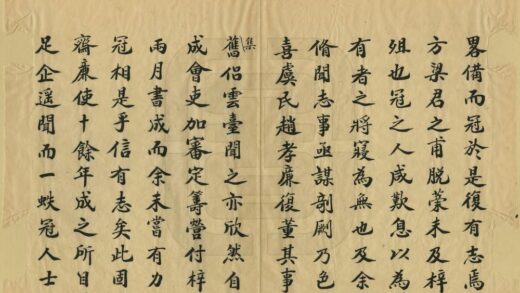 畧備而冠於是復有志焉
方梁君之甫脫藁未及梓
殂也冠之人咸歎息以為
有者之將寢為無也及余
脩聞志事亟謀剞劂乃邑
喜虞民趙孝廉復董其事
集
舊侶雲臺聞之亦欣然自
成會吏加審定籌營付梓
兩月書成而余未嘗有力
冠相是乎信有志矣此固
齋廉使十餘年成之所目
足企遥聞而一冠人士